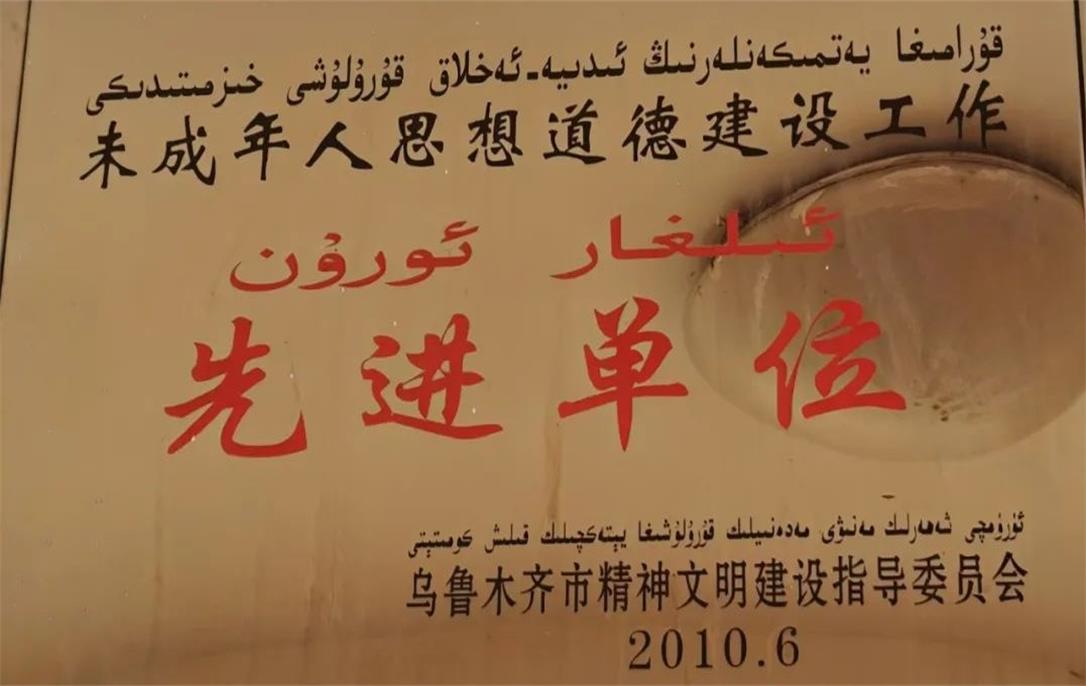 قۇرامىغا يەتمىگەنلەرنىڭ ئىدىيە-ئەخلاق قۇرۇلۇشى خىزمىتىدىكى
未成年人思想道德建设工作
ئىلغار ئورۇن
先进单位
ئۈرۈمچى شەھەرلىك مەنىۋى مەدەنىيلىك قۇرۇلۇشىغا يېتەكچىلىك قىلىش كومىتېتى
乌鲁木齐市精神文明建设指导委员会
2010.6